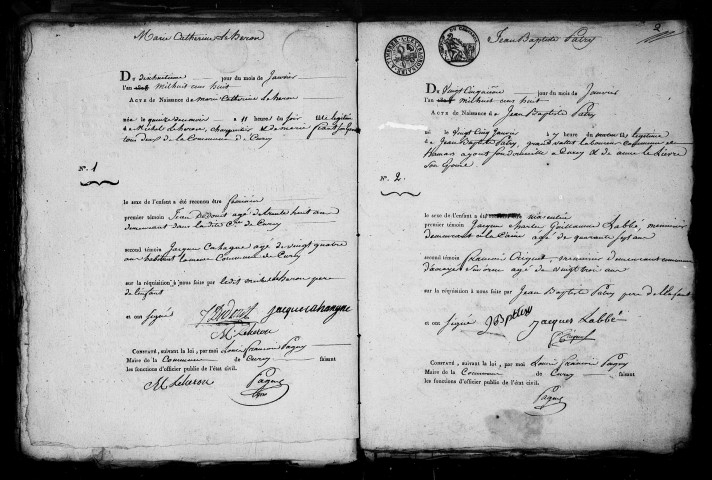 Marie Catherine Leheron
Du dixhuitieme jour du mois de Janvier
l'an milhuit cens huit
Acte de Naissance de marie Catherine Leheron
née le quinze du mois à 11 heures du soir fille légitime
de Michel Leheron, charpentier et de marie
tous deux de la Commune de Curcy
N.° 1
le sexe de l'enfant a été reconnu être feminin
premier témoin Jean Dedouit agé de trente huit ans
demeurant dans la dite C.ne de Curcy
second témoin Jacques Cahagne age de vingt quatre
ans habitant la meme Commune de Curcy
sur la réquisition à nous faite par ledit michel Leheron pere
de l'enfant
et ont signé J Dedouit jacque cahangne
M. Leherou
Constaté, suivant la loi, par moi Louis Francois Pagny
Maire de la Commune de Curcy faisant
les fonctions d'officier public de l'état civil.
M. Leherou Pagny
Jean Baptiste Patry
2
Du Vingt Cinquieme jour du mois de Janvier
l'an milhuit cens huit
Acte de Naissance de Jean Baptiste Patry
né le Vingt Cinq Janvier à 7 heures du légitime
de Jean Baptiste Patry,
ayant son domicile a Curcy et de anne le Lievre
son Epouse
N.° 2.
le sexe de l'enfant a été masculin
premier témoin Jacque Charles Guillaume Labbé, menuisier
demeurant age de quarante sept ans
second témoin Francois menuisier demeurant commune
agé de vingt trois ans
sur la réquisition à nous faite par Jean Baptiste Patry pere de l'enfant
et ont signé JBptiste jacques Labbé
Constaté, suivant la loi, par moi Louis Francois Pagny
Maire de la Commune de Curcy faisant
les fonctions d'officier public de l'état civil.
Pagny